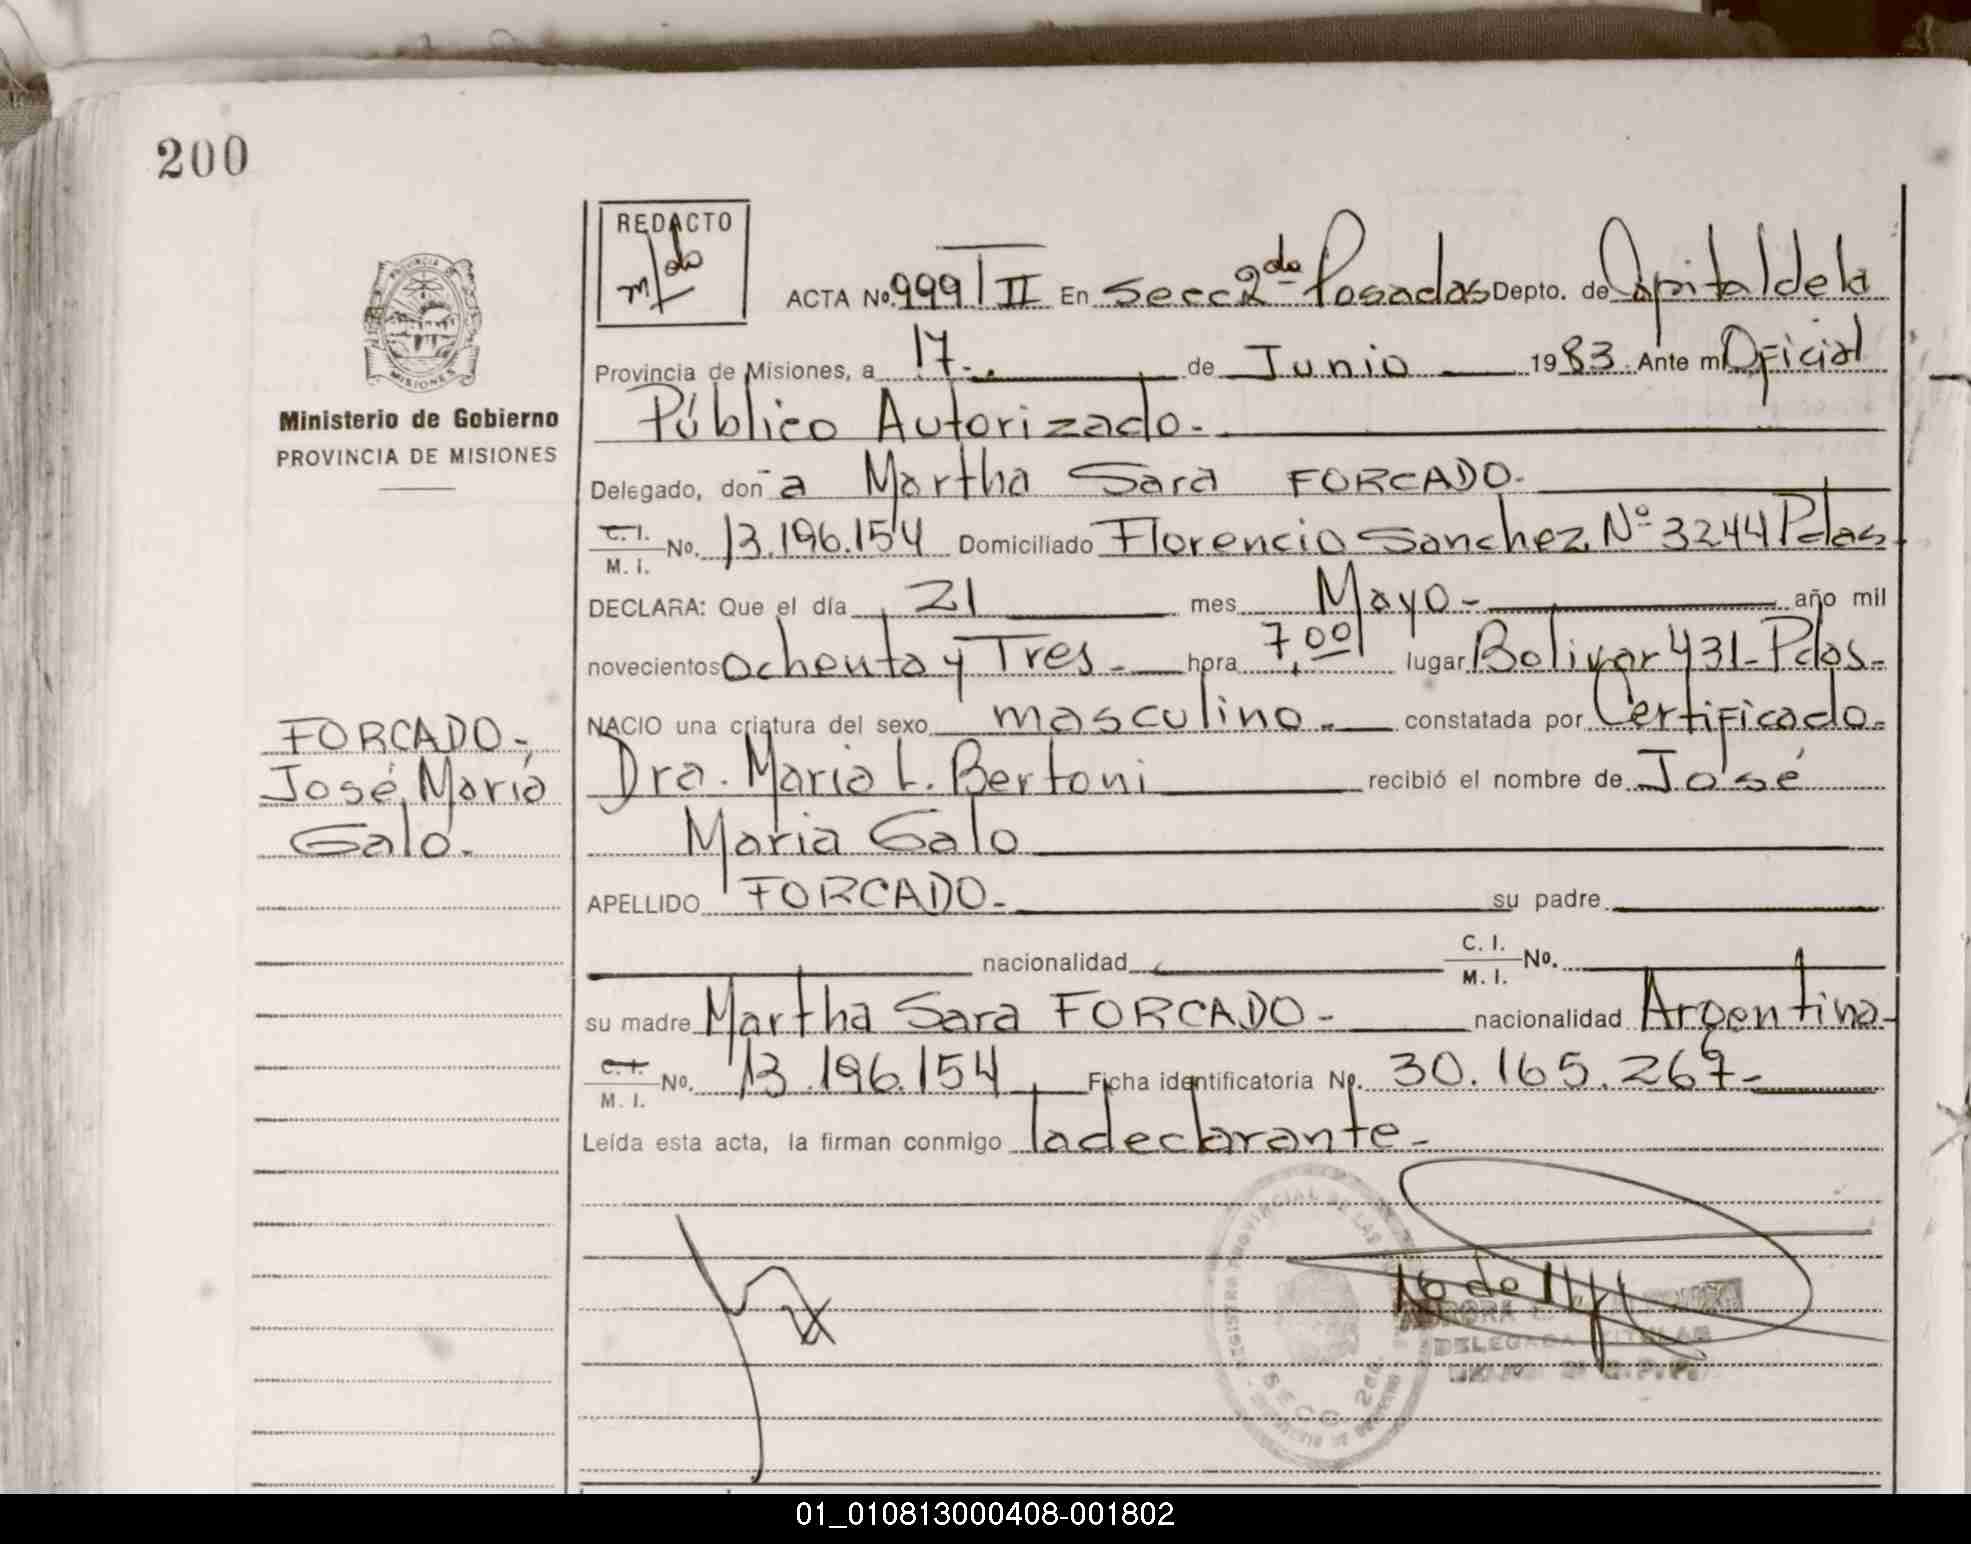 200
REDACTO
PROVINCIA DE
MISIONES
Ministerio de Gobierno
PROVINCIA DE MISIONES
ACTA No. 999 T II En Secc 2da Posadas Depto. de Capital de la
Provincia de Misiones, a 17 de Junio 1983. Ante mi Oficial
Público Autorizado.
Delegado, don a Martha Sara FORCADO.
C. I.
M. I. No. 13.196.154 Domiciliado Florencio Sanchez Nº 3244 Pdas
DECLARA: Que el día 21 mes Mayo año mil
novecientos ochenta y Tres hora 7,00 lugar Bolivar 431 Pdas.
NACIO una criatura del sexo masculino constatada por Certificado
Dra. Maria L. Bertoni recibió el nombre de José
Maria Galo
APELLIDO FORCADO su padre
nacionalidad C. I.
M. I. No.
su madre Martha Sara FORCADO nacionalidad Argentina
C. I.
M. I. No. 13.196.154 Ficha identificatoria No. 30.165.267
Leída esta acta, la firman conmigo la declarante
FORCADO
José Maria
Galo.
REGISTRO PROVINCIAL DE LAS
SECC. 2da.
DELEGADA TITULAR
01_010813000408-001802